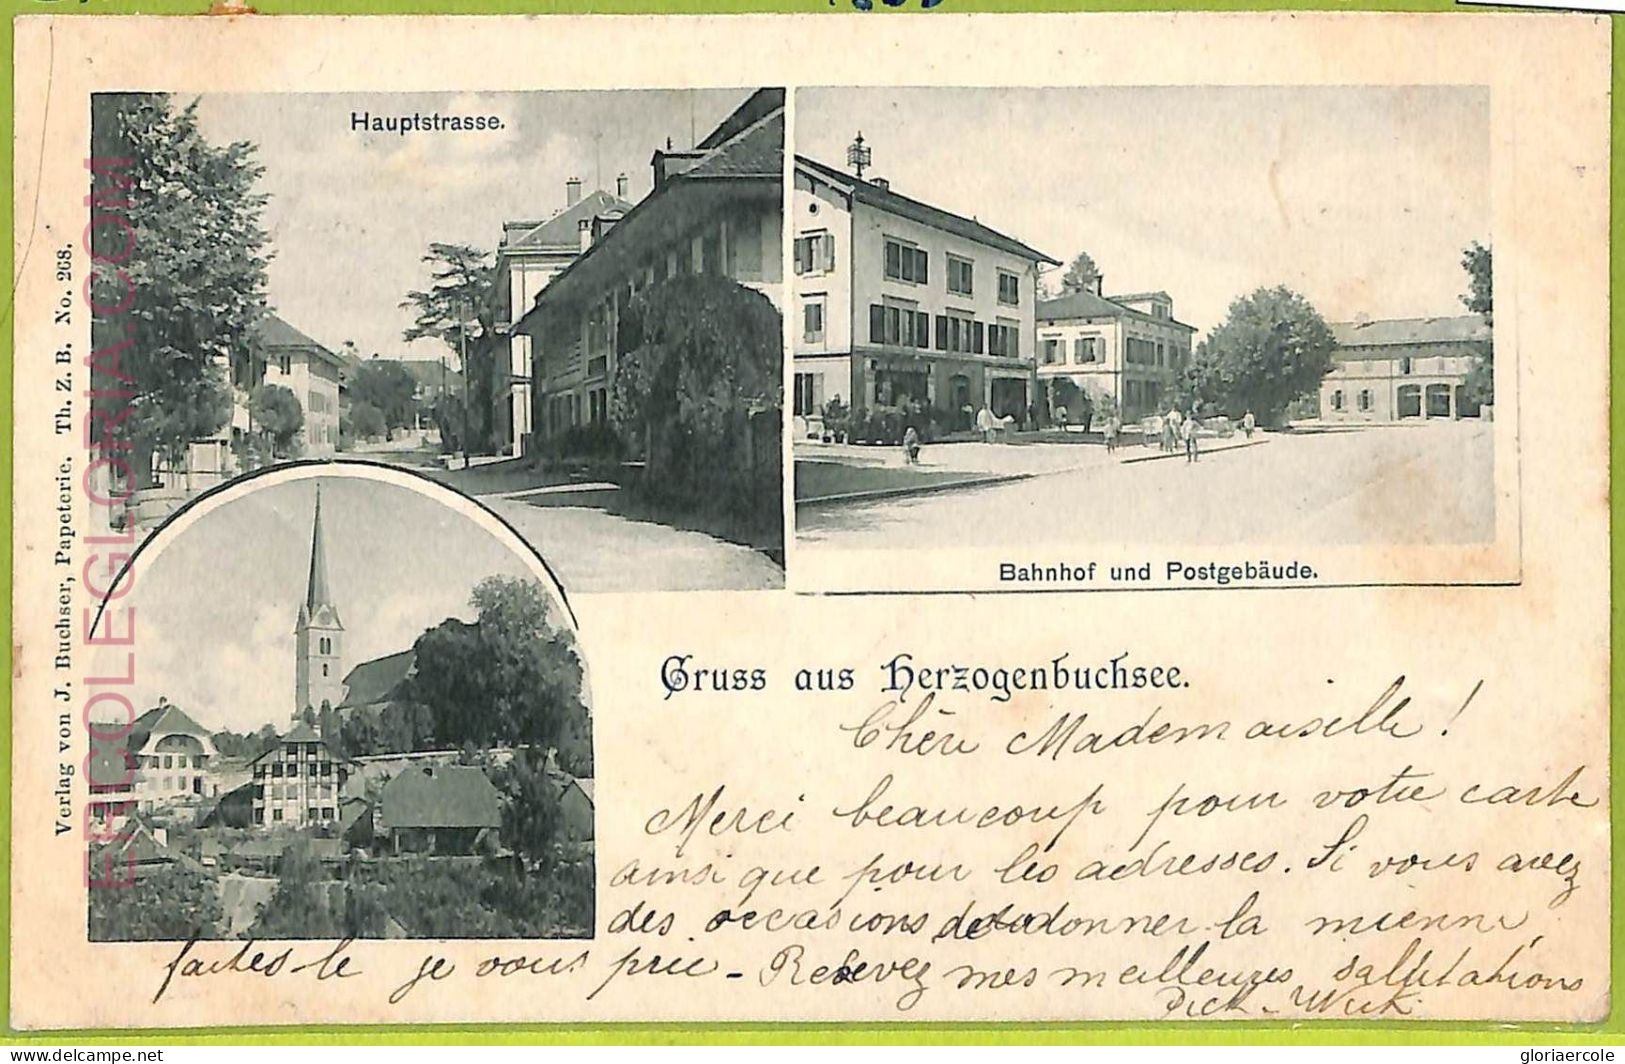 Hauptstrasse.
Bahnhof und Postgebäude.
Verlag von J. Buchser, Papeterie. Th. Z. B. No. 268.
ERCOLEGLORIA.COM
Gruss aus Herzogenbuchsee.
Chère Mademoiselle!
Merci beaucoup pour votre carte
ainsi que pour les adresses. Si vous avez
des occasions de donner la mienne,
faites-le je vous prie - Recevez mes meilleures salutations
delcampe.net
gloriaercole